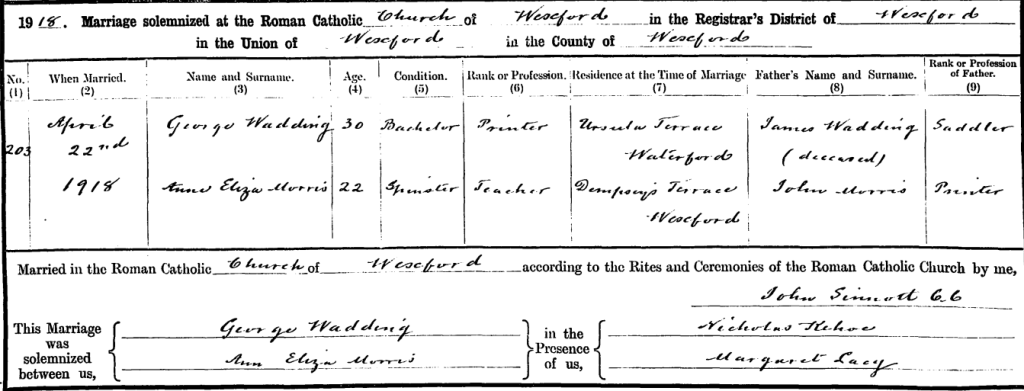 1918. Marriage solemnized at the Roman Catholic Church of Wexford in the Registrar's District of Wexford
in the Union of Wexford in the County of Wexford
No. When Married. Name and Surname. Age. Condition. Rank or Profession. Residence at the Time of Marriage Father's Name and Surname. Rank or Profession of Father.
(1) (2) (3) (4) (5) (6) (7) (8) (9)
203 April 22nd 1918 George Wadding 30 Bachelor Printer Ursula Terrace Waterford James Wadding (deceased) Saddler
Anne Eliza Morris 22 Spinster Teacher Dempsey's Terrace Wexford John Morris Printer
Married in the Roman Catholic Church of Wexford according to the Rites and Ceremonies of the Roman Catholic Church by me,
John Sinnott C.C
This Marriage was solemnized between us, George Wadding in the Presence of us, Nicholas Kehoe
Ann Eliza Morris Margaret Lacy